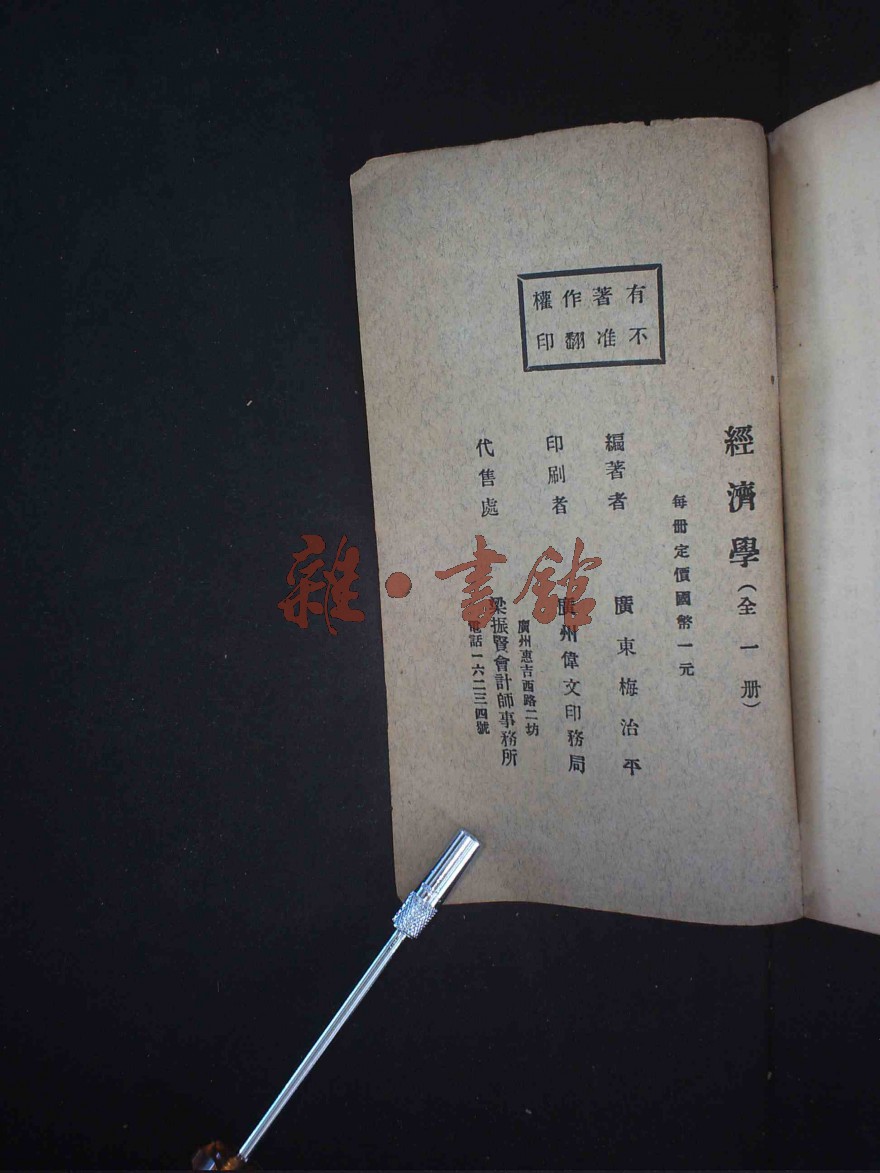 有著作權
不准翻印
經濟學(全一册)
每冊定價國幣一元
編著者 廣東梅治平
印刷者 廣州偉文印務局
代售處 廣州惠吉西路二坊
梁振賢會計師事務所
電話一六二三四號
雜·書館